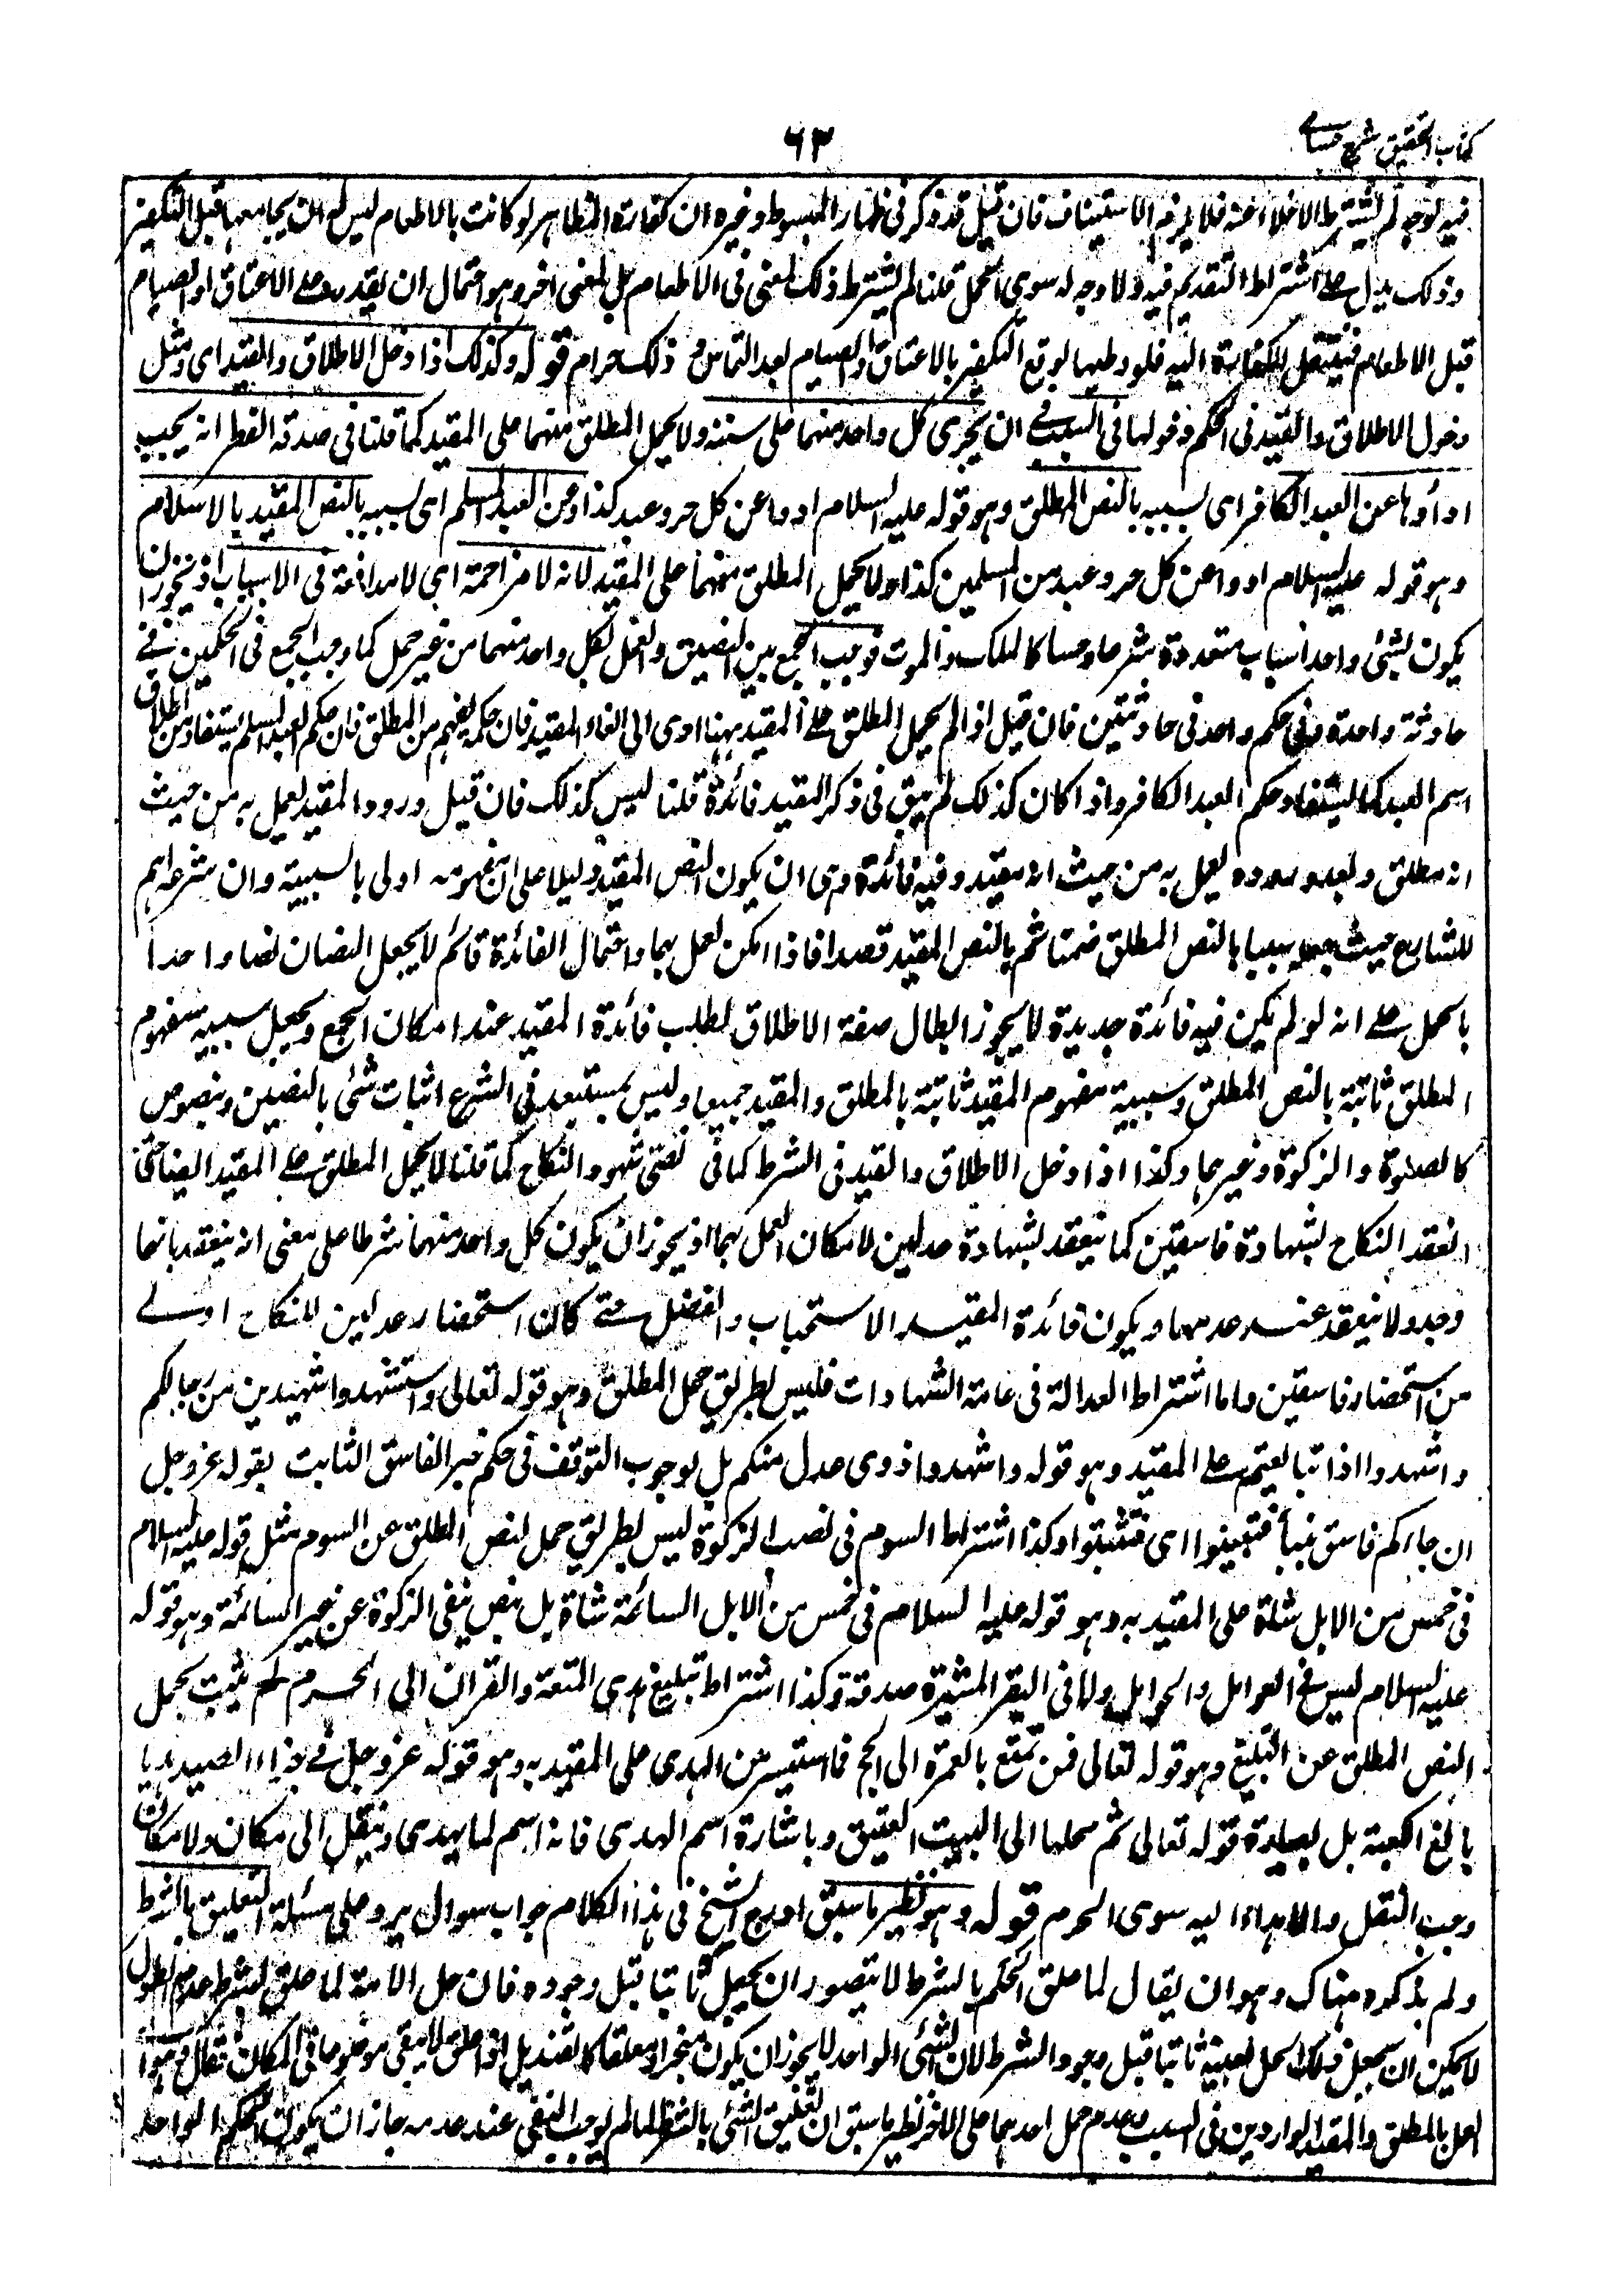 كتاب التحقيق شرح حسامے
٦٣
فيه لوجه لم يشترط الاخلاء عنه فلا يلزمه الاستيناف فان قيل قد ذكر فى ظهار المبسوط وغيره ان كفارة المظاهر لو كانت بالاطعام ليس له ان يجامعها قبل التكفير
وذلك يدل على اشتراط التقديم فيه ولا وجه له سوى الحمل قلنا لم يشترط ذلك لمعنى فى الاطعام بل لمعنى آخر وهو احتمال ان يقدر على الاعتاق او الصيام
قبل الاطعام فينتقل الكفارة اليه فلو وطيها لوقع التكفير بالاعتاق او الصيام بعد التماس و ذلك حرام قوله وكذلك اذا دخل الاطلاق والتقييد اى ومثل
دخول الاطلاق والتقييد فى الحكم دخولهما فى السبب فے ان يجرى كل واحد منهما على سننه ولا يحمل المطلق منهما على المقيد كما قلنا فى صدقة الفطر انه يجب
اداؤها عن العبد الكافر اى بسببه بالنص المطلق وهو قوله عليه السلام ادوا عن كل حر وعبد كذا وعن العبد المسلم اى بسببه بالنص المقيد بالاسلام
وهو قوله عليه السلام ادوا عن كل حر وعبد من المسلمين كذا ولا يحمل المطلق منهما على المقيد لانه لا مزاحمة اى لا مدافعة فى الاسباب اذ يجوز ان
يكون لشئ واحد اسباب متعددة شرعا وحسا كالملك والموت فوجب الجمع بين النصين والعمل بكل واحد منهما من غير حمل كما وجب الجمع فى الحكمين فے
حادثة واحدة وفى حكم واحد فى حادثتين فان قيل اذا لم يحمل المطلق على المقيد ههنا ادى الى الغاء المقيد فان حكمه يفهم من المطلق فان حكم العبد المسلم يستفاد من اطلاق
اسم العبد كما يستفاد حكم العبد الكافر واذا كان كذلك لم يبق فى ذكر المقيد فائدة قلنا ليس كذلك فان قبل ورود المقيد يعمل به من حيث
انه مطلق وبعد وروده يعمل به من حيث انه مقيد وفيه فائدة وهى ان يكون النص المقيد دليلا على ان مفهومه اولى بالسببية وان شرعه اهم
للشارع حيث جعله سببا بالنص المطلق ضمنا ثم بالنص المقيد قصدا فاذا امكن العمل بهما واحتمال الفائدة قائم لا يجعل النصان نصا واحدا
بالحمل على انه لو لم يكن فيه فائدة جديدة لا يجوز ابطال صفة الاطلاق لطلب فائدة المقيد عند امكان الجمع ويجعل سببية مفهوم
المطلق ثابتة بالنص المطلق وسببية مفهوم المقيد ثابتة بالمطلق والمقيد جميعا وليس بمستبعد فى الشرع اثبات شئ بالنصين وبنصوص
كالصلوة والزكوة وغيرهما وكذا اذا دخل الاطلاق والقيد فى الشرط كما فى نصى شهود النكاح كما قلنا لا يحمل المطلق على المقيد ايضا حتى
انعقد النكاح بشهادة فاسقين كما ينعقد بشهادة عدلين لامكان العمل بهما اذ يجوز ان يكون كل واحد منهما شرطا على معنى انه ينعقد بايهما
وجد ولا ينعقد عند عدمهما ويكون فائدة المقيد الاستحباب والفضل حتے كان استحضار عدلين للنكاح اولے
من استحضار فاسقين واما اشتراط العدالة فى عامة الشهادات فليس بطريق حمل المطلق وهو قوله تعالى واستشهدوا شهيدين من رجالكم
واشهدوا اذا تبايعتم على المقيد وهو قوله واشهدوا ذوى عدل منكم بل لوجوب التوقف فى حكم خبر الفاسق الثابت بقوله عز وجل
ان جاءكم فاسق بنبأ فتبينوا اى فتثبتوا وكذا اشتراط السوم فى نصب الزكوة ليس بطريق حمل النص المطلق عن السوم مثل قوله عليه السلام
فى خمس من الابل شاة على المقيد به وهو قوله عليه السلام فى خمس من الابل السائمة شاة بل بنص ينفى الزكوة عن غير السائمة وهو قوله
عليه السلام ليس فے العوامل والحوامل ولا فى البقر المثيرة صدقة وكذا اشتراط تبليغ هدى المتعة والقران الى الحرم لم يثبت بحمل
النص المطلق عن التبليغ وهو قوله تعالى فمن تمتع بالعمرة الى الحج فما استيسر من الهدى على المقيد به وهو قوله عز وجل فے جزاء الصيد هديا
بالغ الكعبة بل بعبارة قوله تعالى ثم محلها الى البيت العتيق وباشارة اسم الهدى فانه اسم لما يهدى وينقل الى مكان ولا مكان
وجب النقل والاهداء اليه سوى الحرم قوله وهو نظير ما سبق ادرج الشيخ فى هذا الكلام جواب سوال يرد على مسئلة التعليق بالشرط
ولم يذكره هناك وهو ان يقال لما علق الحكم بالشرط لا يتصور ان يجعل ثابتا قبل وجوده فان حل الامة لما علق بشرط عدم الطول
لا يمكن ان يجعل ذلك الحل بعينه ثابتا قبل وجود الشرط لان الشئ الواحد لا يجوز ان يكون منجزا ومعلقا كالقنديل اذا علق لا يبقى موضوعا فى المكان فقال وهو
العمل بالمطلق والمقيد الواردين فى السبب وعدم حمل احدهما على الآخر نظير ما سبق ان تعليق الشئ بالشرط لما لم يوجب النفى عند عدمه جاز ان يكون الحكم الواحد